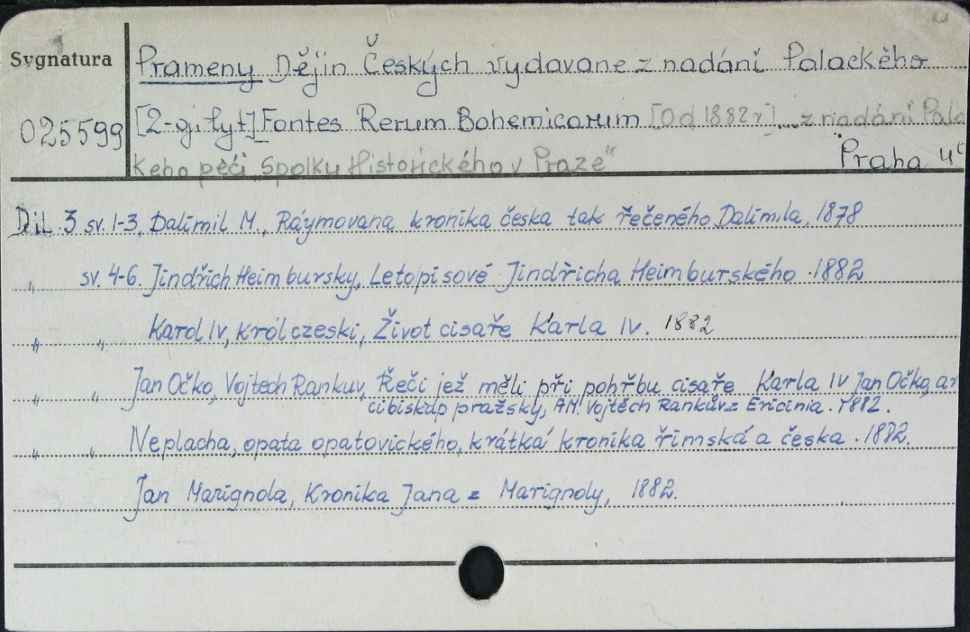 Sygnatura
Prameny Dějin Českých vydavane z nadání Palackého
025599
[2-gi tyt] Fontes Rerum Bohemicarum [Od 1882 r] ... z nadání Pala
Keho péčí Spolku Historického v Praze"
Praha 4°
Dil. 3 sv. 1-3, Dalimil M., Rýmovana kronika česka tak řečeného Dalimila, 1878
" sv. 4-6. Jindřich Heimbursky, Letopisové Jindřicha Heimburského. 1882
" " Karol IV, król czeski, Život cisaře Karla IV. 1882
" " Jan Očko, Vojtech Rankuv, Řeči jež měli při pohřbu cisaře Karla IV Jan Očko, ar
cibiskup pražsky, AM. Vojtěch Rankův z Ericinia. 1882.
" " Neplacha, opata opatovického, krátká kronika řimská a česka. 1882.
Jan Marignola, Kronika Jana z Marignoly, 1882.